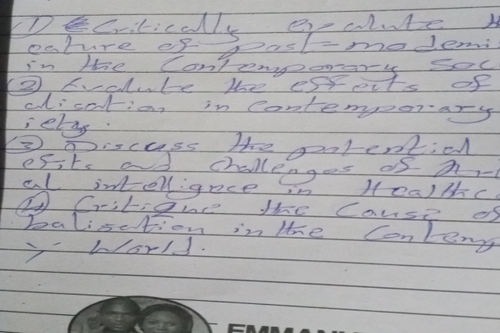 (1) Critically evaluate th
eature of post-moderni
in the Contemporary soc
(2) Evaluate the effects of
alisation in contemporary
iety.
(3) Discuss the potential
efits and challenges of Ar
al intellignce in Healthc
(4) Critique the Cause of
balisation in the Contemp
y World.
EMMANU